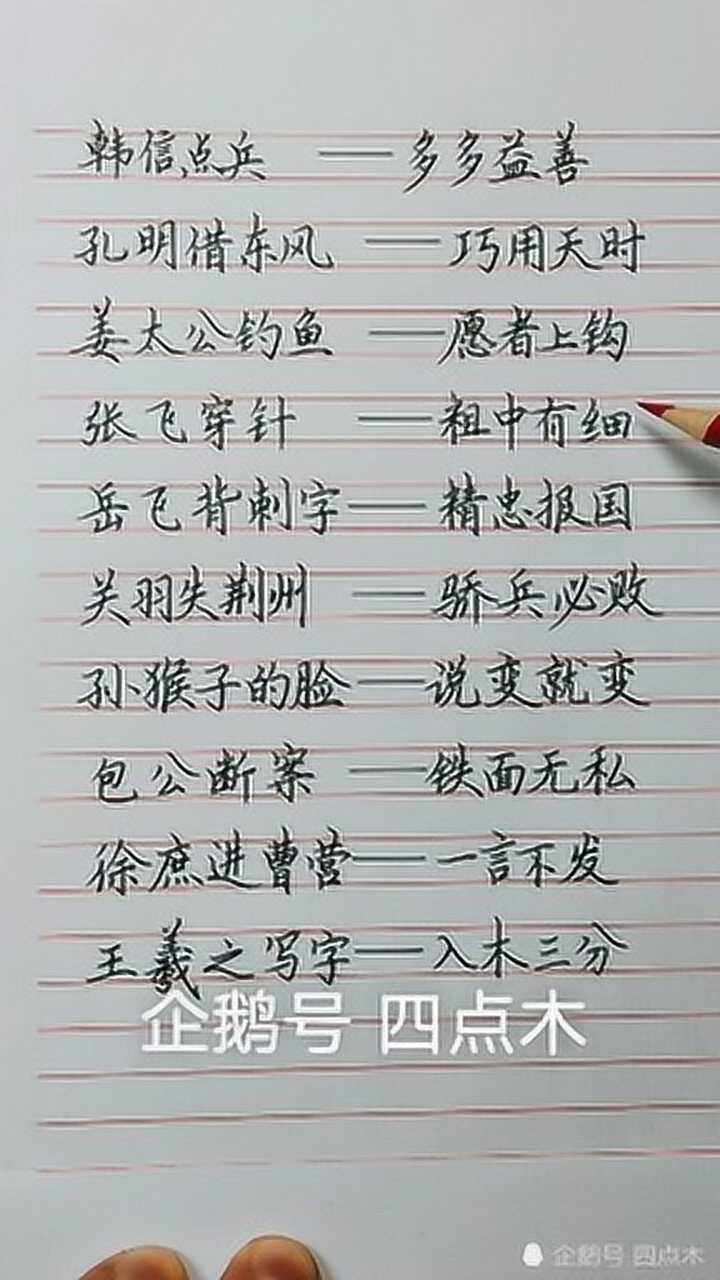 韩信点兵 ——多多益善
孔明借东风 ——巧用天时
姜太公钓鱼 ——愿者上钩
张飞穿针 ——粗中有细
岳飞背刺字——精忠报国
关羽失荆州 ——骄兵必败
孙猴子的脸——说变就变
包公断案 ——铁面无私
徐庶进曹营——一言不发
王羲之写字——入木三分
企鹅号 四点木
企鹅号 四点木